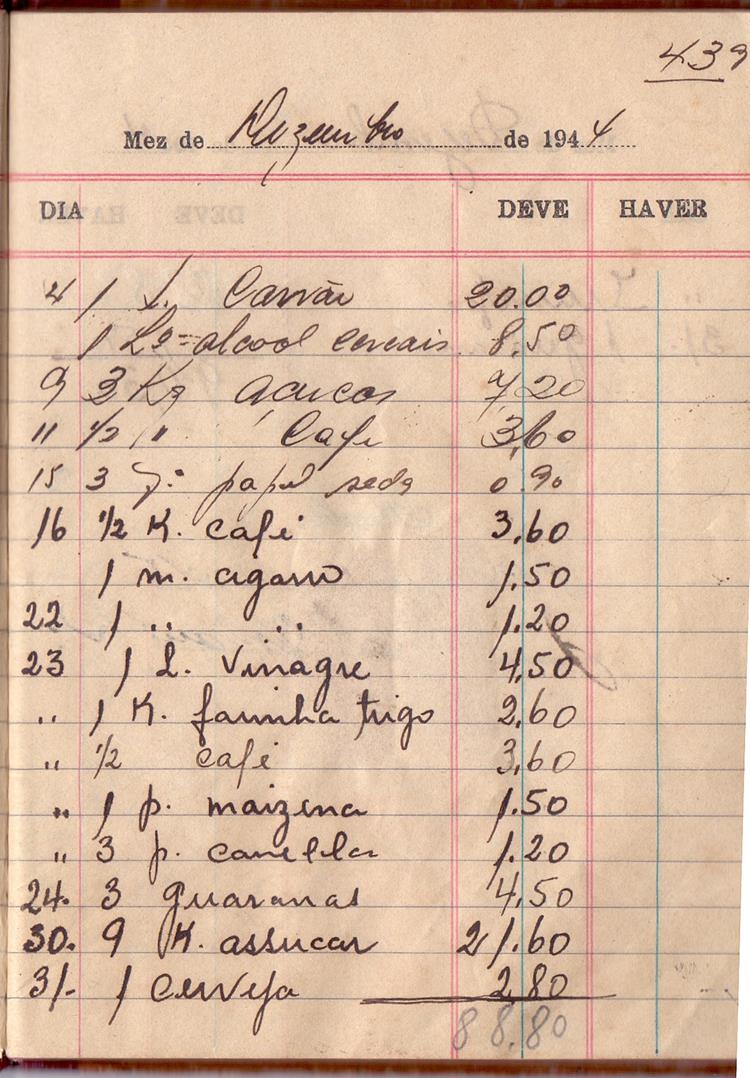 439
Mez de Dezembro de 1944
DIA DEVE HAVER
4 1 S. Carvão 20.00
1 Lo = alcool cereais 8.50
9 3 Kg acucar 7,20
11 1/2 " Cafe 3,60
15 3 papel seda 0.90
16 1/2 K. café 3,60
1 m. cigarro 1.50
22 1 " " 1.20
23 1 L. Vinagre 4,50
" 1 K. farinha trigo 2,60
" 1/2 café 3,60
" 1 p. maizena 1.50
" 3 p. canella 1.20
24. 3 guaranas 4,50
30. 9 K. assucar 21.60
31- 1 Cerveja 2,80
88.80